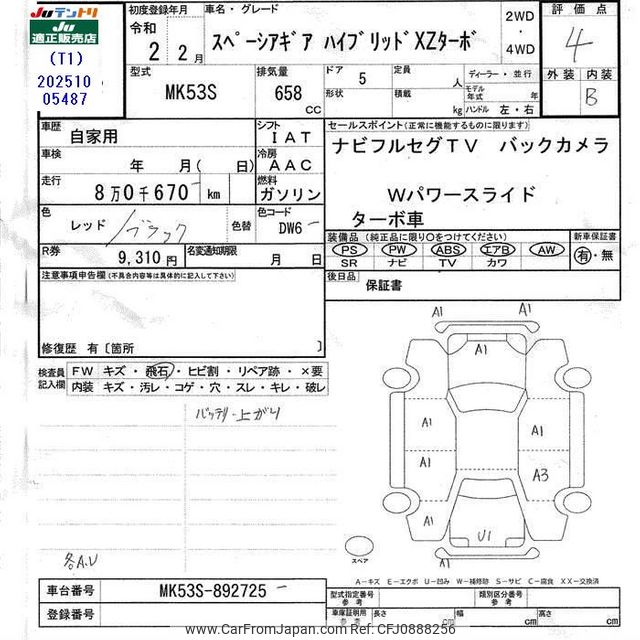 Juテントリ
Ju
適正販売店
(T1)
202510
05487
初度登録年月
令和
2 2月
車名・グレード
スペーシアギア ハイブリッドXZターボ
2WD
・
4WD
評価点
4
外装 内装
B
型式
MK53S
排気量
658
CC
ドア 5
形状
定員
人
積載
kg
ディーラー・並行
モデル年式
ハンドル 左・右
車歴
自家用
シフト
IAT
車検
年 月( 日)
冷房
AAC
走行
8万0千670 km
燃料
ガソリン
色
レッド /ブラック
色替
色コード
DW6
R券
9,310円
名変通知期限
月 日
セールスポイント(正常に機能するものに限ります)
ナビフルセグTV バックカメラ
Wパワースライド
ターボ車
装備品(純正品に限り○をつけてください)
PS PW ABS エアB AW
SR ナビ TV カワ
新車保証書
有・無
後日品
保証書
注意事項申告欄(不具合内容等は具体的に記入して下さい)
修復歴 有〔箇所 〕
検査員
記入欄
FW キズ・飛石・ヒビ割・リペア跡・×要
内装 キズ・汚レ・コゲ・穴・スレ・キレ・破レ
バッテリー上がり
各A.U
A1
A1
A1
A1
A1
A1
A3
A1
U1
A1
スペア
A-キズ E-エクボ U-凹み W-補修跡 S-サビ C-腐食 XX-交換済
車台番号
MK53S-892725
登録番号
型式指定番号
参考
類別区分番号
参考
車庫証明用
参考
長さ cm
幅 cm
高さ cm
www.CarFromJapan.com CFJ0888256